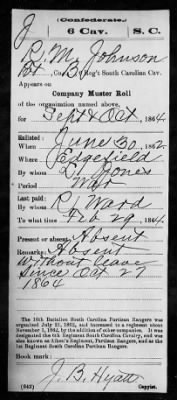 J
(Confederate.)
6 Cav. S. C.
R. M. Johnson
Pvt, Co. B, 6 Reg't South Carolina Cav.
Appears on
Company Muster Roll
of the organization named above,
for Sept & Oct, 1864.
Enlisted:
When June 30, 1862.
Where Edgefield
By whom Jones
Period War
Last paid:
By whom R. J. Ward
To what time Feb 29, 1864.
Present or absent Absent
Remarks: Absent
without leave
since Oct 27
1864
The 16th Battalion South Carolina Partisan Rangers was
organized July 21, 1862, and increased to a regiment about
November 1, 1862, by the addition of other companies. It was
designated the 6th Regiment South Carolina Cavalry, and was
also known as Aiken's Regiment, Partisan Rangers, and as the
1st Regiment South Carolina Partisan Rangers.
Book mark:
J. B. Hyatt
(642) Copyist.